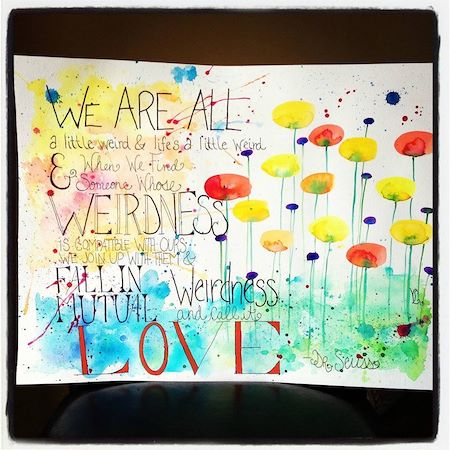 WE ARE ALL
a little weird & life's a little weird
& When We Find
Someone Whose
WEIRDNESS
IS COMPATIBLE WITH OURS
WE JOIN UP WITH THEM &
FALL IN
MUTUAL Weirdness
and call it
LOVE
Dr Seuss